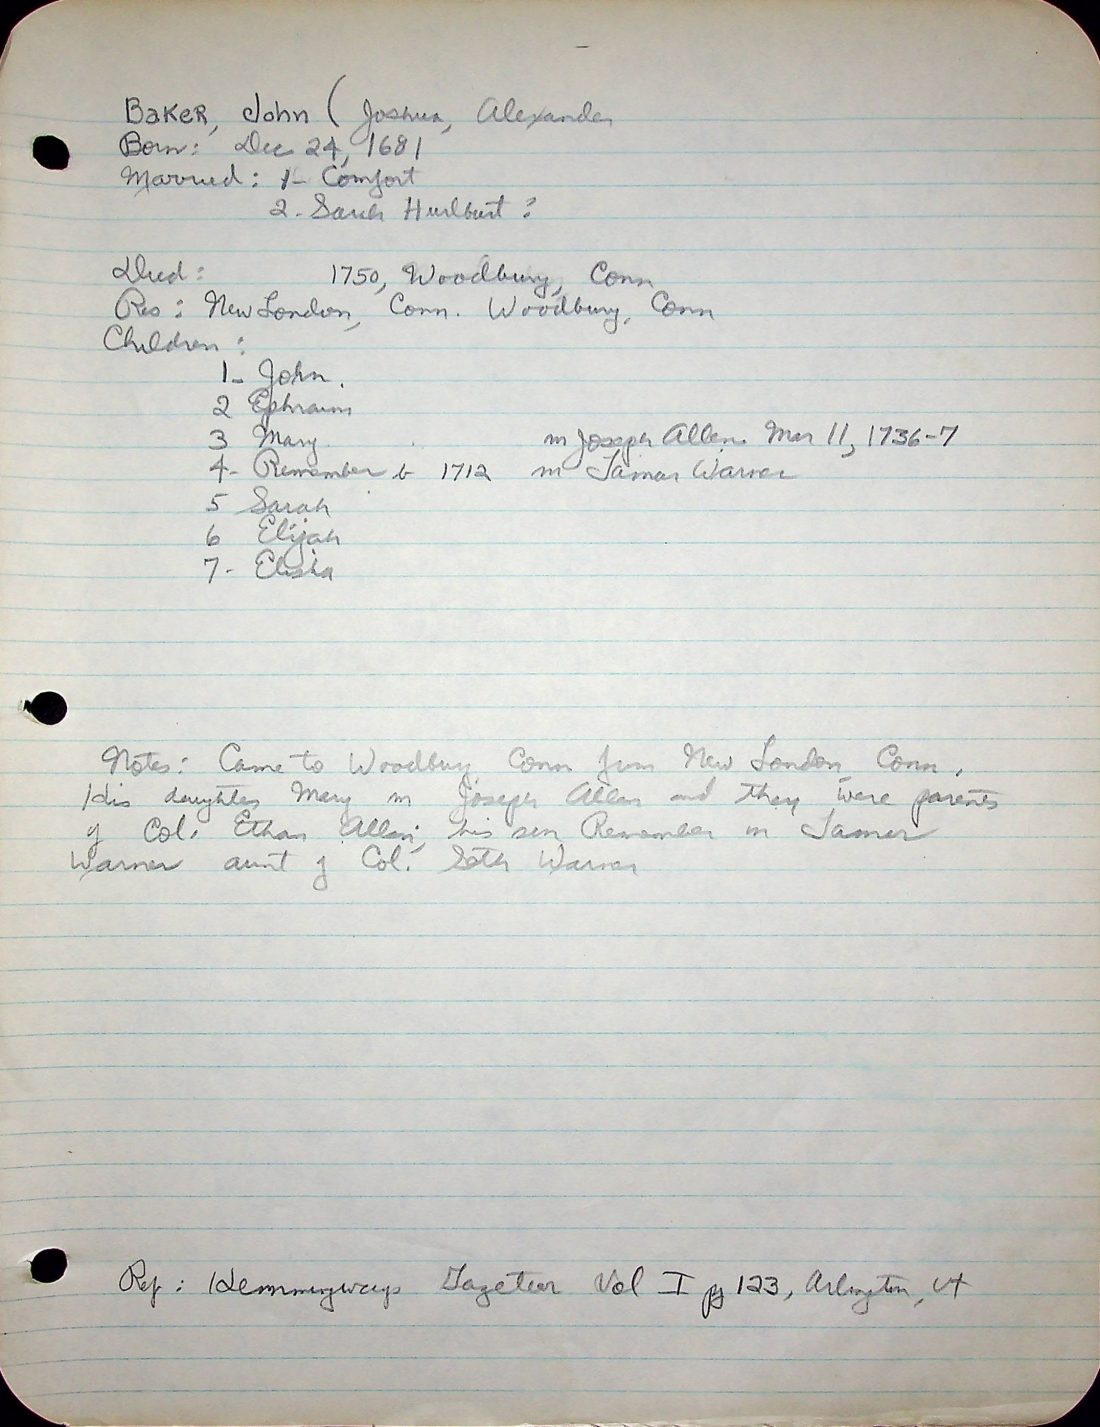 Baker, John ( Joshua, Alexander
Born: Dec 24, 1681
Married: 1- Comfort
2. Sarah Hurlburt ?
Died: 1750, Woodbury, Conn
Res: New London, Conn. Woodbury, Conn
Children:
1- John.
2 Ephraim
3 Mary m Joseph Allen. Mar 11, 1736-7
4- Remember b 1712 m Tamar Warner
5 Sarah
6 Elijah
7- Elisha
Notes: Came to Woodbury Conn from New London Conn.
His daughter Mary m Joseph Allen and they were parents
of Col. Ethan Allen; his son Remember m Tamar
Warner aunt of Col. Seth Warner
Ref: Hemmingways Gazeteer Vol I pg 123, Arlington, Vt